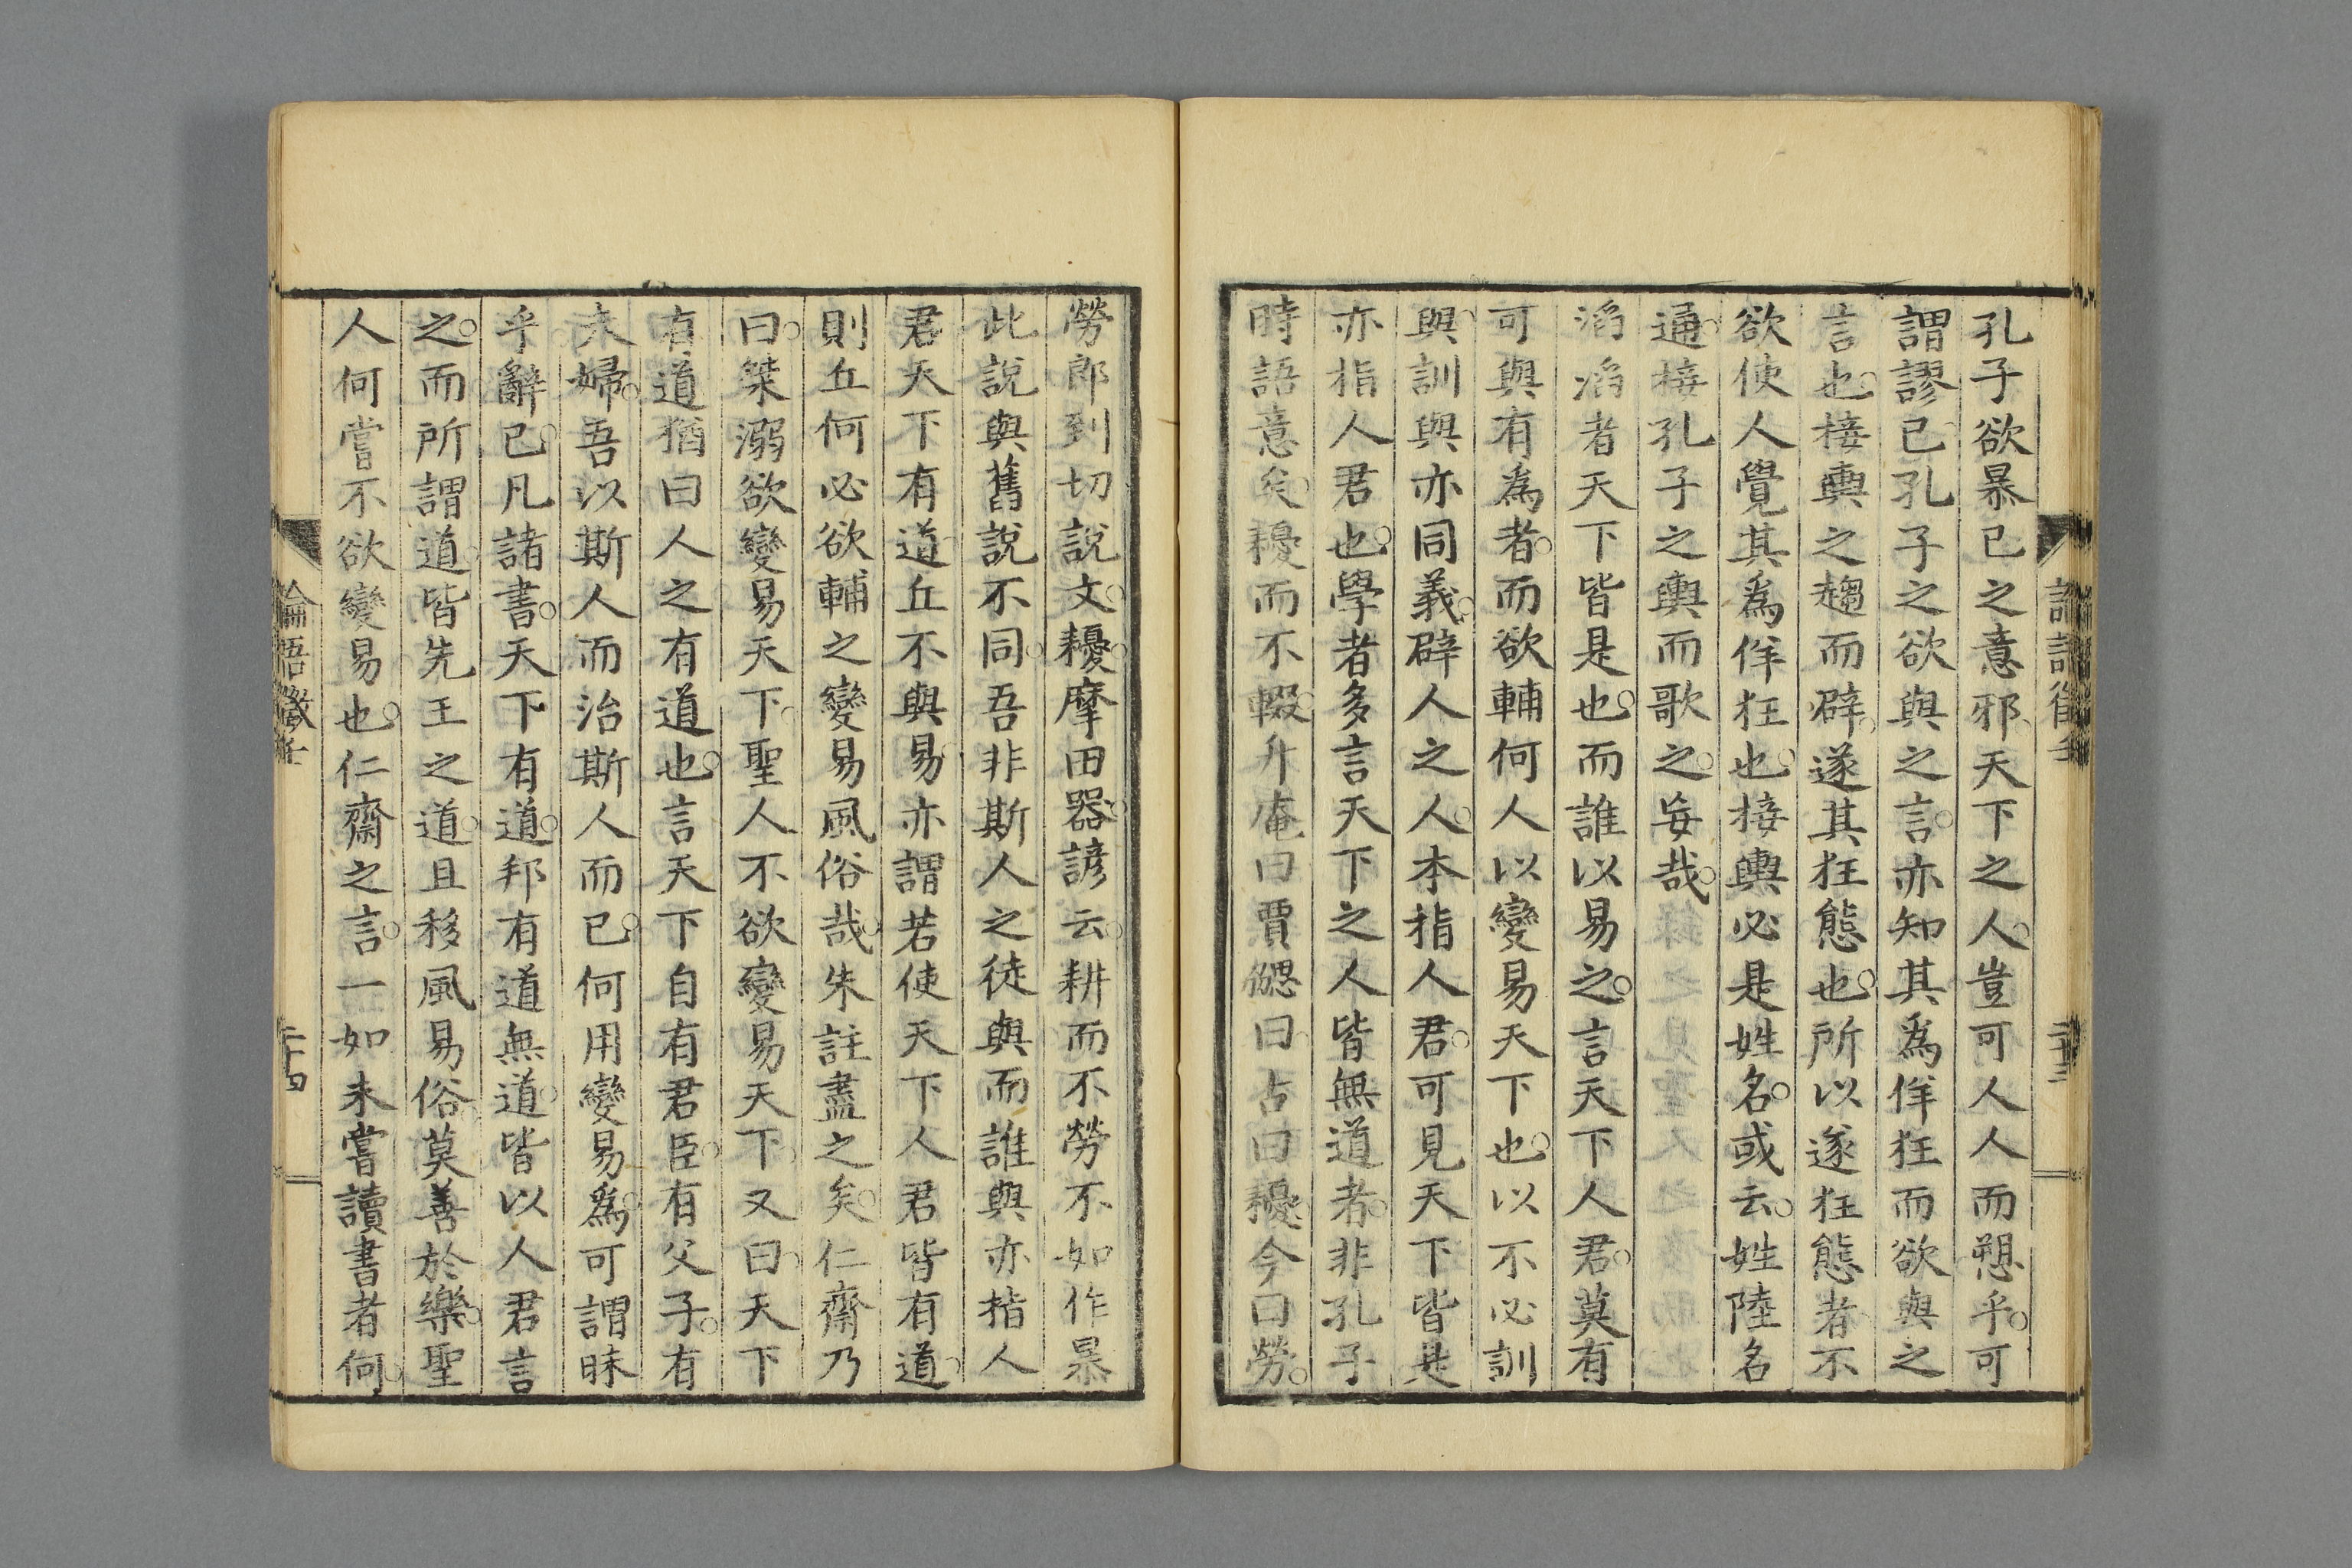 孔子欲暴已之意邪天下之人豈可人人而愬乎可
謂謬已孔子之欲與之言亦知其爲佯狂而欲與之
言也接輿之趨而辟遂其狂態也所以遂狂態者不
欲使人覺其爲佯狂也接輿必是姓名或云姓陸名
通接孔子之輿而歌之妄哉
滔滔者天下皆是也而誰以易之言天下人君莫有
可與有爲者而欲輔何人以變易天下也以不必訓
與訓與亦同義辟人之人本指人君可見天下皆是
亦指人君也學者多言天下之人皆無道者非孔子
時語意矣耰而不輟升庵曰賈勰曰古曰耰今曰勞
勞郎到切說文耰摩田器諺云耕而不勞不如作暴
此說與舊說不同吾非斯人之徒與而誰與亦指人
君天下有道丘不與易亦謂若使天下人君皆有道
則丘何必欲輔之變易風俗哉朱註盡之矣仁齋乃
曰桀溺欲變易天下聖人不欲變易天下又曰天下
有道猶曰人之有道也言天下自有君臣有父子有
夫婦吾以斯人而治斯人而已何用變易爲可謂昧
乎辭已凡諸書天下有道邦有道無道皆以人君言
之而所謂道皆先王之道且移風易俗莫善於樂聖
人何嘗不欲變易也仁齋之言一如未嘗讀書者何
論語徵壬
二十四